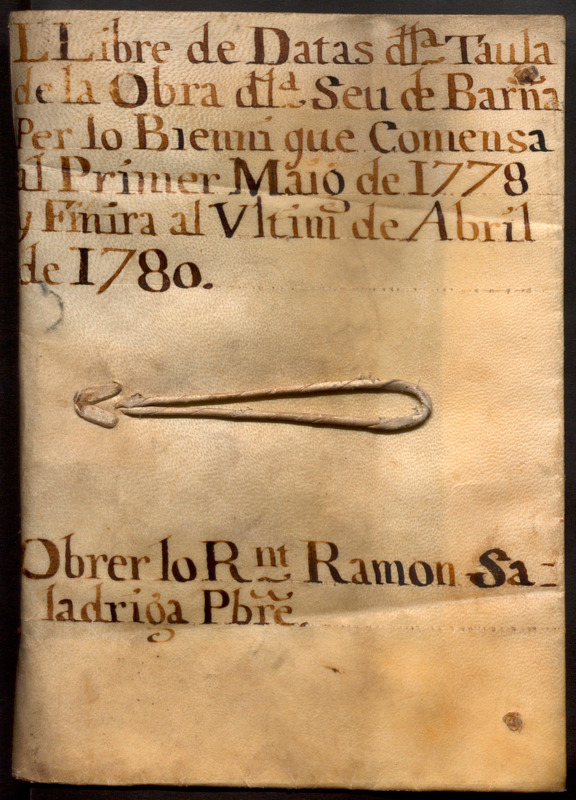 LLibre de Datas dlla Taula
de la Obra dlla Seu de Barña
Per lo Bienni que Comensa
al Primer Maig de 1778
y Finira al Vltim de Abril
de 1780.
Obrer lo Rnt Ramon Sa=
ladriga Pbrẽ.